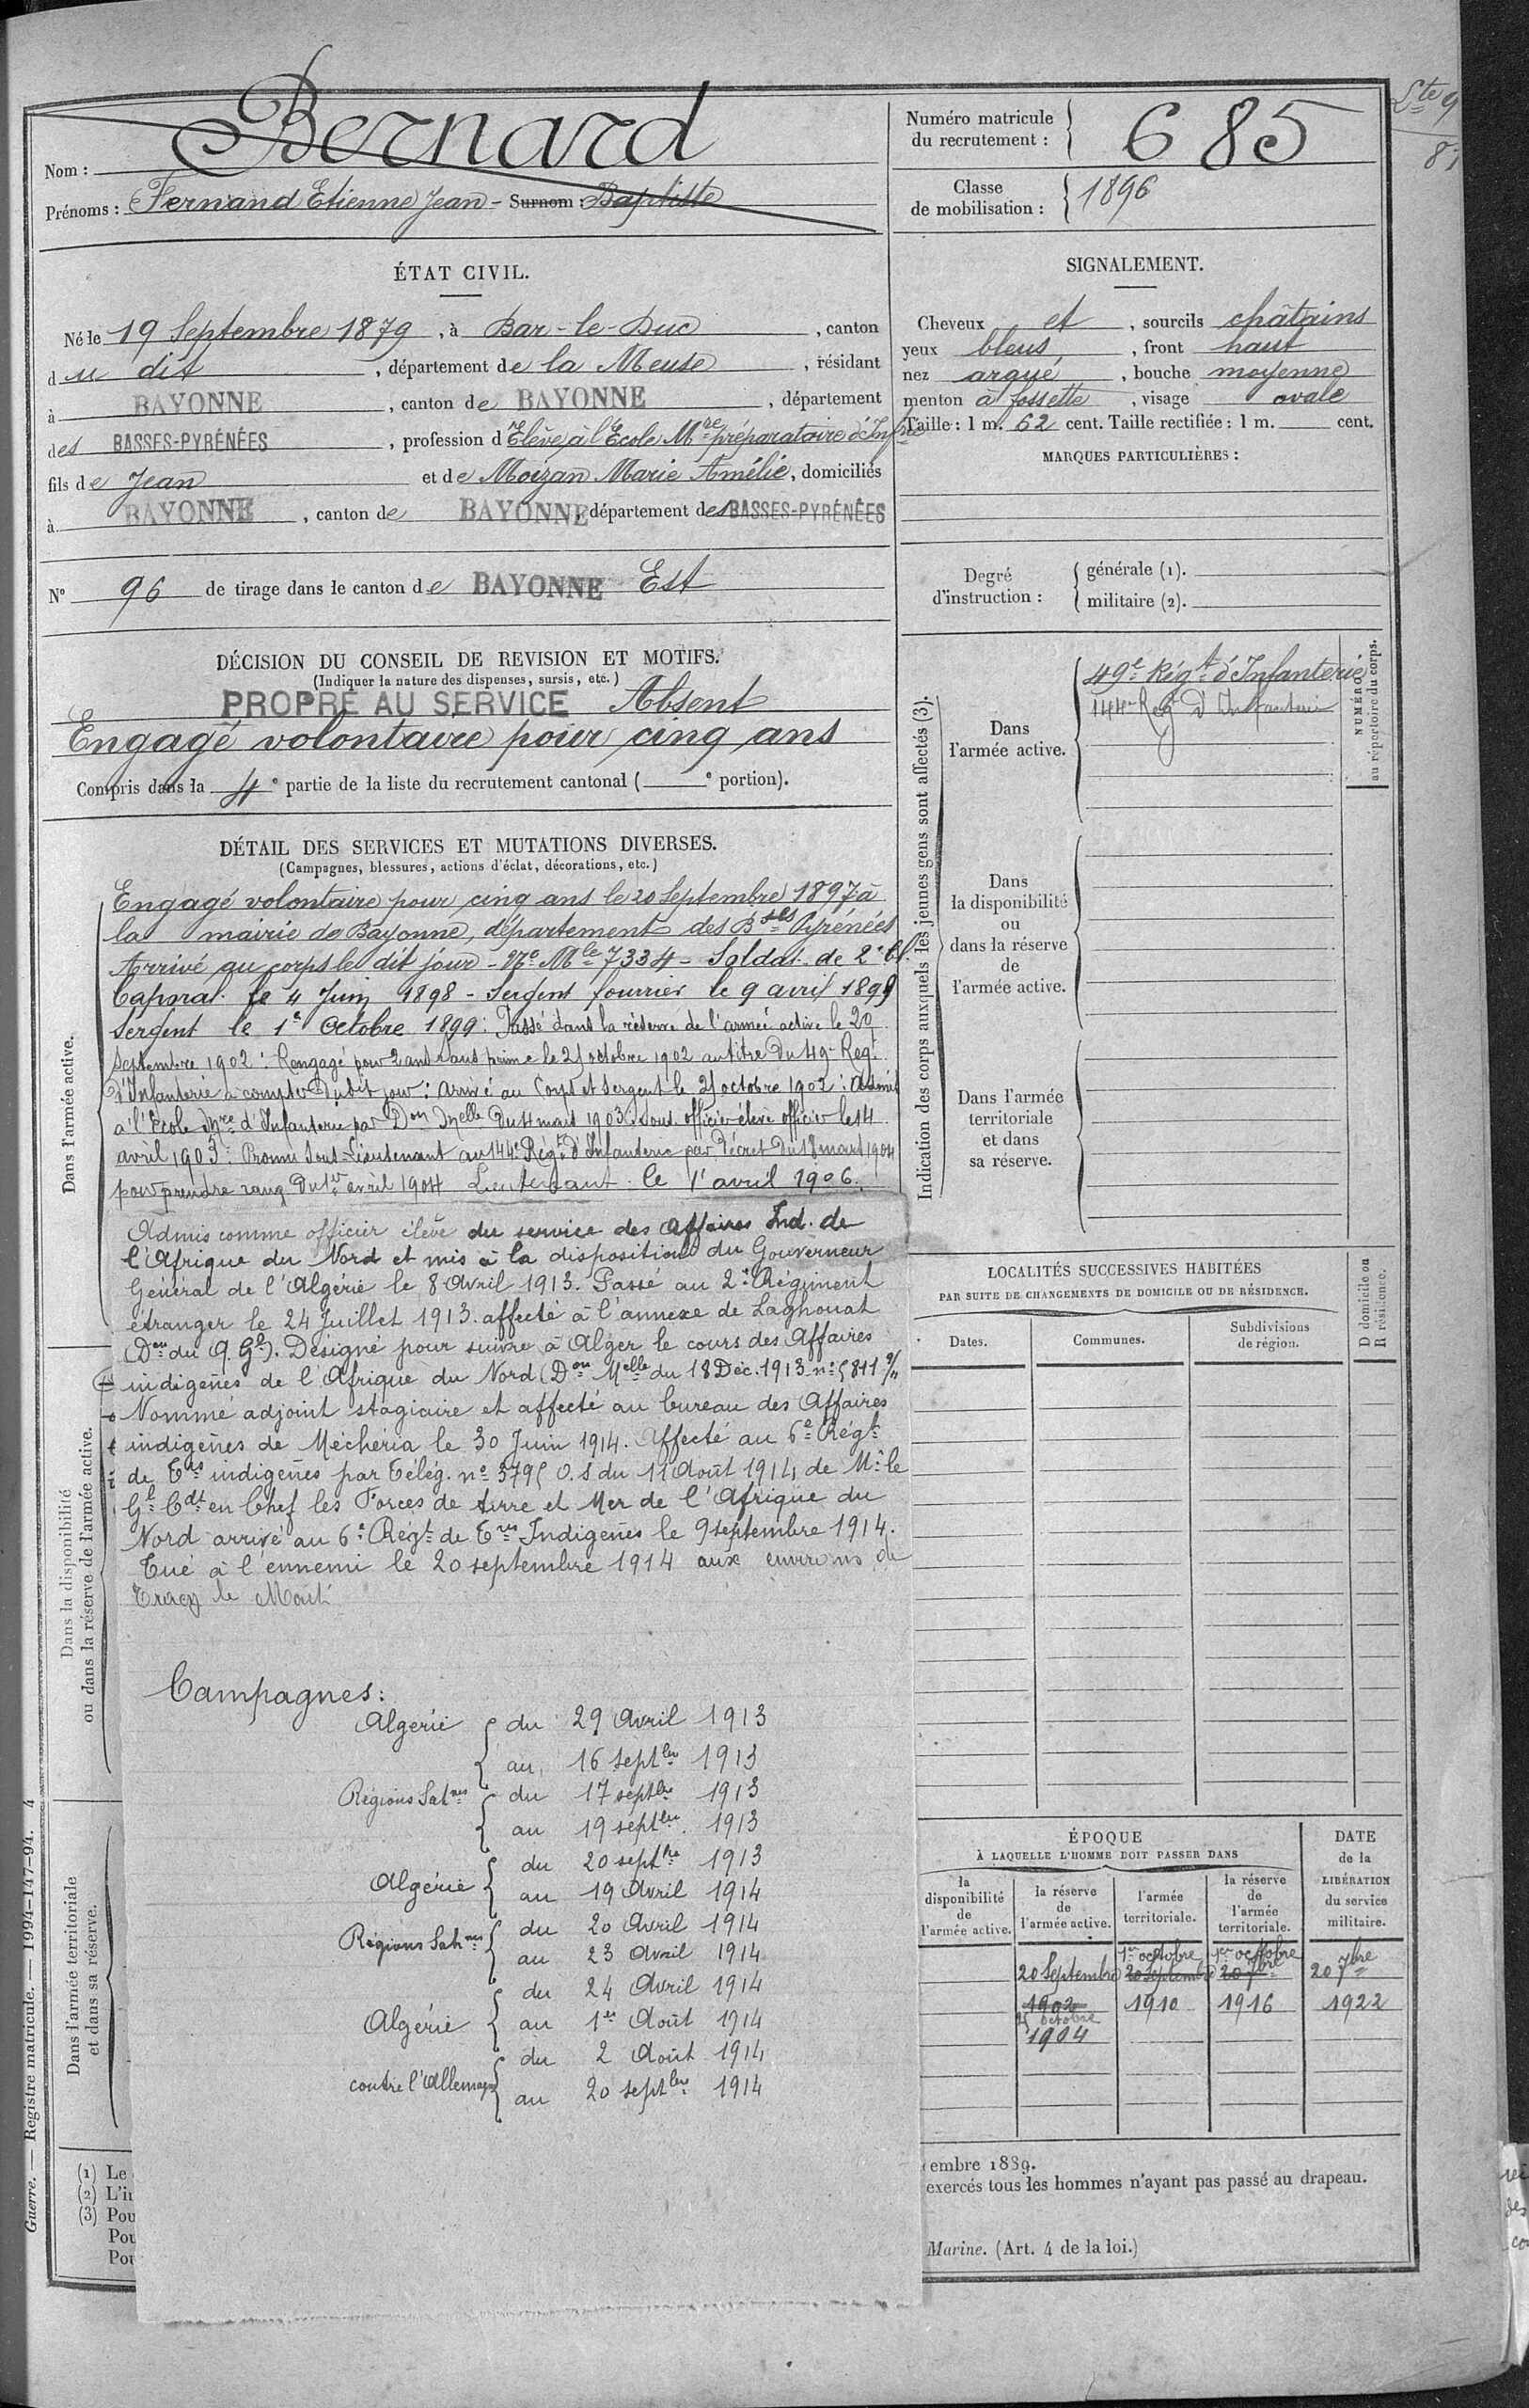 Nom : Bernard
Prénoms : Fernand Etienne Jean - Surnom : Baptiste
Numéro matricule
du recrutement : 685
Classe
de mobilisation : 1896
Ste 9
ÉTAT CIVIL.
Né le 19 Septembre 1879, à Bar-le-Duc, canton
du dit, département de la Meuse, résidant
à BAYONNE, canton de BAYONNE, département
des BASSES-PYRÉNÉES, profession d'Elève à l'Ecole Mre préparatoire d'Infrie
fils de Jean et de Moizan Marie Amélie, domiciliés
à BAYONNE, canton de BAYONNE, département des BASSES-PYRÉNÉES
N° 96 de tirage dans le canton de BAYONNE Est
SIGNALEMENT.
Cheveux et, sourcils châtains
yeux bleus, front haut
nez arqué, bouche moyenne
menton à fossette, visage ovale
Taille : 1 m. 62 cent. Taille rectifiée : 1 m. cent.
MARQUES PARTICULIÈRES :
Degré
d'instruction :
générale (1).
militaire (2).
DÉCISION DU CONSEIL DE REVISION ET MOTIFS.
(Indiquer la nature des dispenses, sursis, etc.)
PROPRE AU SERVICE Absent
Engagé volontaire pour cinq ans
Compris dans la 4e partie de la liste du recrutement cantonal ( e portion).
DÉTAIL DES SERVICES ET MUTATIONS DIVERSES.
(Campagnes, blessures, actions d'éclat, décorations, etc.)
Dans l'armée active.
Engagé volontaire pour cinq ans le 20 Septembre 1897 à
la mairie de Bayonne, département des Bses Pyrénées
Arrivé au corps le dit jour - No Mle 7334 - Soldat de 2e Cl.
Caporal le 4 Juin 1898 - Sergent fourrier le 9 avril 1899
Sergent le 1e Octobre 1899 : Passé dans la réserve de l'armée active le 20
Septembre 1902 : Rengagé pour 2 ans sans prime le 25 octobre 1902 au titre du 49e Regt
d'Infanterie à compter dudit jour : arrivé au Corps et Sergent le 25 octobre 1902 : Admis
à l'Ecole Mre d'Infanterie par Don Melle du 4 mars 1903 : Sous officier élève officier le 14
avril 1903 : Promu Sous-Lieutenant au 144e Régt d'Infanterie par Décret du 18 mars 1904
pour prendre rang du 1er avril 1904 Lieutenant le 1r avril 1906.
Admis comme officier élève du service des Affaires Ind. de
l'Afrique du Nord et mis à la disposition du Gouverneur
Général de l'Algérie le 8 Avril 1913. Passé au 2e Régiment
étranger le 24 Juillet 1913. affecté à l'annexe de Laghouat
(Don du G. Gl). Désigné pour suivre à Alger le cours des Affaires
indigènes de l'Afrique du Nord (Don Melle du 18 Déc. 1913 no 5811 9/11
Nommé adjoint stagiaire et affecté au bureau des Affaires
indigènes de Méchéria le 30 Juin 1914. Affecté au 6e Régt
de Trs indigènes par Télég. no 3795 O.S du 11 Août 1914 de Mr le
Gl Cdt en Chef les Forces de terre et Mer de l'Afrique du
Nord arrivé au 6e Régt de Trs Indigènes le 9 septembre 1914.
Tué à l'ennemi le 20 septembre 1914 aux environs de
Tracy le Mont
Dans la disponibilité
ou dans la réserve de l'armée active.
Campagnes :
Algérie du 29 Avril 1913
au 16 septbre 1913
Régions Sahnes du 17 septbre 1913
au 19 septbre 1913
Algérie du 20 septbre 1913
au 19 Avril 1914
Régions Sahnes du 20 Avril 1914
au 23 Avril 1914
Algérie du 24 Avril 1914
au 1er Août 1914
contre l'Allemagne du 2 Août 1914
au 20 septbre 1914
Dans l'armée territoriale
et dans sa réserve.
Indication des corps auxquels les jeunes gens sont affectés (3).
Dans
l'armée active.
49e Régt d'Infanterie
144e Reg d'Infanterie
NUMÉRO
au répertoire du corps.
Dans
la disponibilité
ou
dans la réserve
de
l'armée active.
Dans l'armée
territoriale
et dans
sa réserve.
LOCALITÉS SUCCESSIVES HABITÉES
PAR SUITE DE CHANGEMENTS DE DOMICILE OU DE RÉSIDENCE.
Dates.
Communes.
Subdivisions
de région.
D domicile ou
R résidence.
ÉPOQUE
À LAQUELLE L'HOMME DOIT PASSER DANS
la
disponibilité
de
l'armée active.
la réserve
de
l'armée active.
l'armée
territoriale.
la réserve
de
l'armée
territoriale.
DATE
de la
LIBÉRATION
du service
militaire.
1er octobre 1er octobre
20 Septembre 20 Septembre 20 7bre 20 7bre
1902 1910 1916 1922
25 octobre
1904
(1) Le
(2) L'in
(3) Pou
Pou
Pou
embre 1889.
exercés tous les hommes n'ayant pas passé au drapeau.
Marine. (Art. 4 de la loi.)
Guerre. — Registre matricule. — 1994-147-94. 4